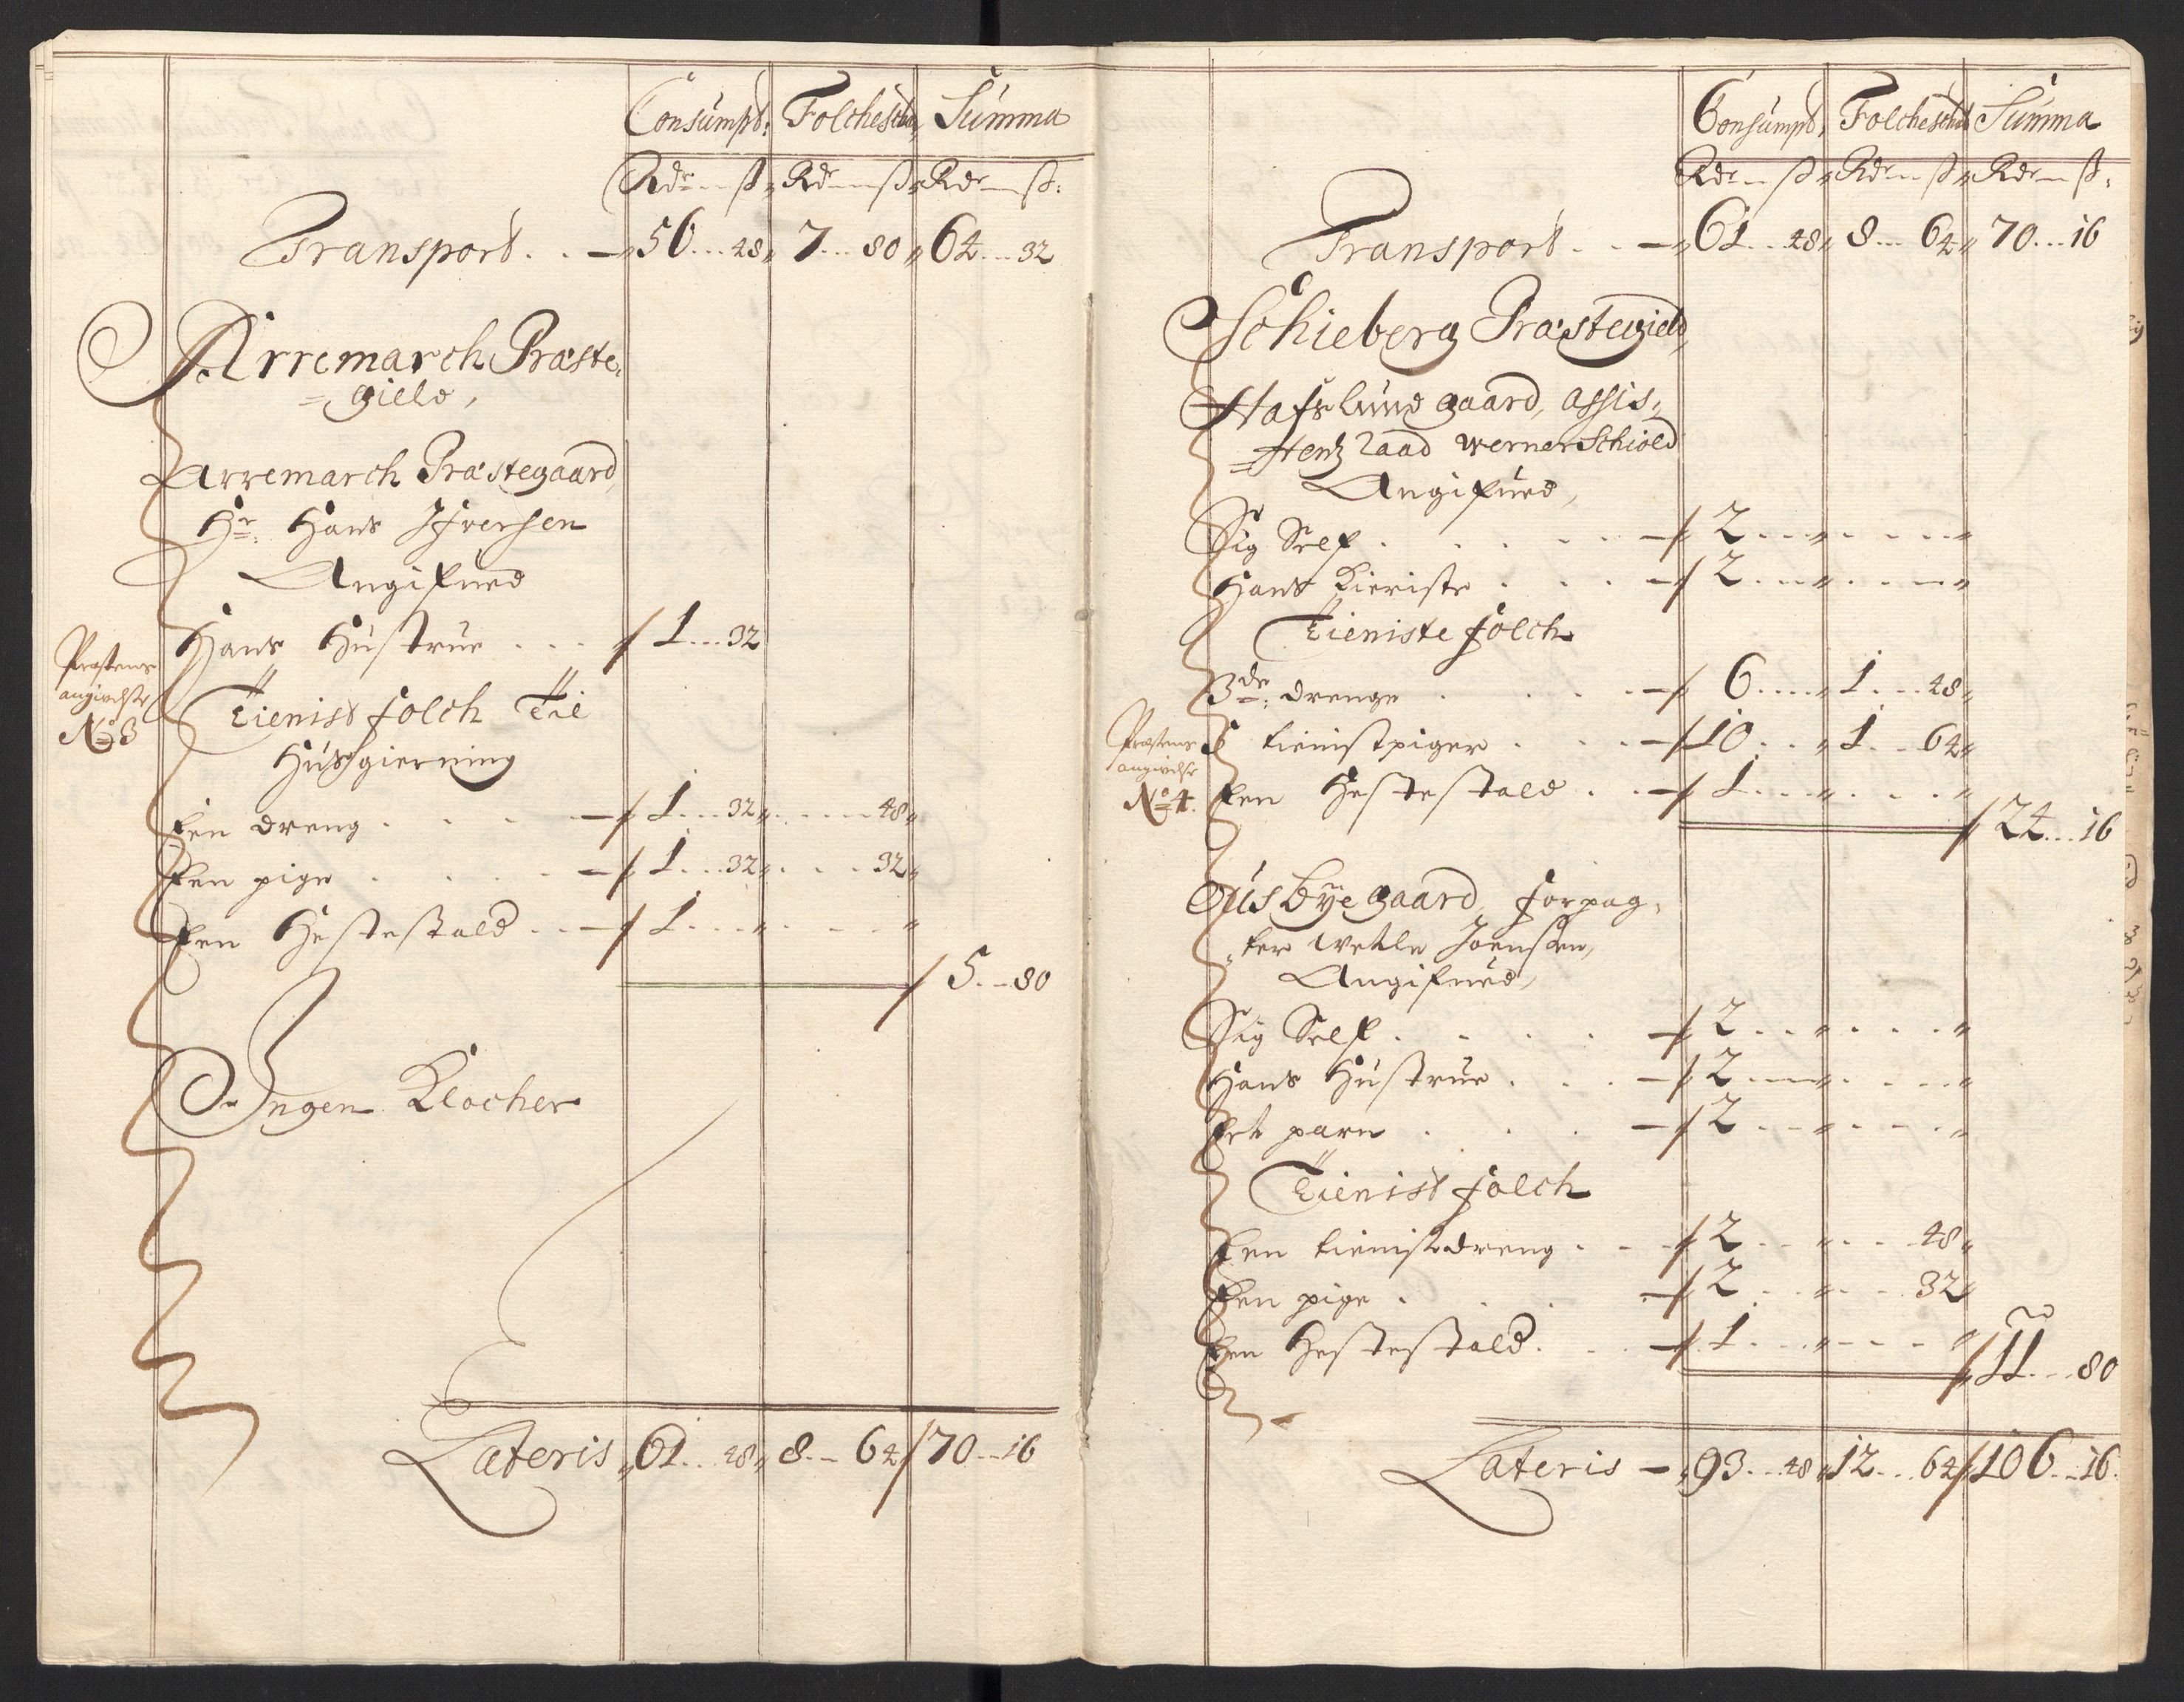 Consumpt: Folcheschat, Summa
Rdr---ß, Rdr---ß, Rdr---ß:
Transport . . — 56...48, 7...80, 64...32
Arremarch Præste,
=gield,
Arremarch Præstegaard,
Hr. Hans Ifversen
Angifued
Hans Hustrue . . . 1...32
Præstens
angivelse
No 3
Tienist folch Til
Huusgierning
Een dreng . . . . — 1...32, ....48,
Een pige . . . . — 1...32, ....32,
Een Hestestald . . — 1...
5...80
Ingen Klocher
Lateris 61...48, 8...64 70...16
Consumpt, Folcheschat Summa
Rdr---ß, Rdr---ß, Rdr---ß,
Transport . . — 61...48, 8...64, 70...16
Schieberg Præstegield,
Hafslund gaard, Assis,
=tentz Raad Werner Schiold
Angifued,
Sig Self . . . . . — 2...
Hans Kieriste . . . — 2...
Tieniste folch
3de drenge . . . . — 6..., 1...48,
Præstens
angivelse
No 4.
5 tienistpiger . . . — 10..., 1...64,
Een Hestestald . . — 1...
24...16
Ousbye gaard, forpag,
,ter Wetle Joensen,
Angifued,
Sig Self . . . . . — 2...
Hans Hustrue . . . — 2...
Eet parn . . . . — 2...
Tienist folch
Een tienistdreng . . — 2... ...48,
Een pige . . . . — 2... ...32,
Een Hestestald . . — 1...
11...80
Lateris — 93...48, 12...64 106...16.